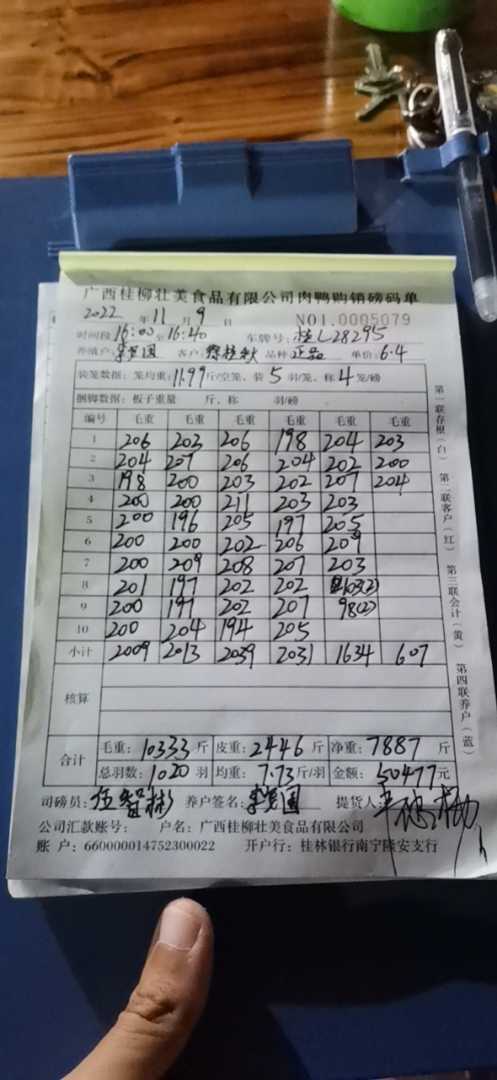 广西桂柳壮美食品有限公司肉鸭购销磅码单
2022 年 11 月 9 日 NO1.0005079
时间段 16:00 至 16:40 车牌号: 桂L28295
养殖户: 客户: 品种: 正品 单价: 6.4
装笼数据: 笼均重: 11.99 斤/空笼、装 5 羽/笼、称 4 笼/磅
捆脚数据: 板子重量 斤、称 羽/磅
编号 毛重 毛重 毛重 毛重 毛重 毛重
1 206 203 206 198 204 203
2 204 207 206 204 202 200
3 198 200 203 202 207 204
4 200 200 211 203 203
5 200 196 205 197 205
6 200 200 202 206 209
7 200 209 208 207 203
8 201 197 202 202 103(2)
9 200 197 202 207 98(2)
10 200 204 194 205
小计 2009 2013 2039 2031 1634 607
核算
合计 毛重: 10333 斤 皮重: 2446 斤 净重: 7887 斤
总羽数: 1020 羽 均重: 7.73 斤/羽 金额: 50477 元
司磅员: 伍智彬 养户签名: 提货人:
公司汇款账号: 户名: 广西桂柳壮美食品有限公司
账 户: 660000014752300022 开户行: 桂林银行南宁隆安支行
第一联存根(白) 第二联客户(红) 第三联会计(黄) 第四联养户(蓝)